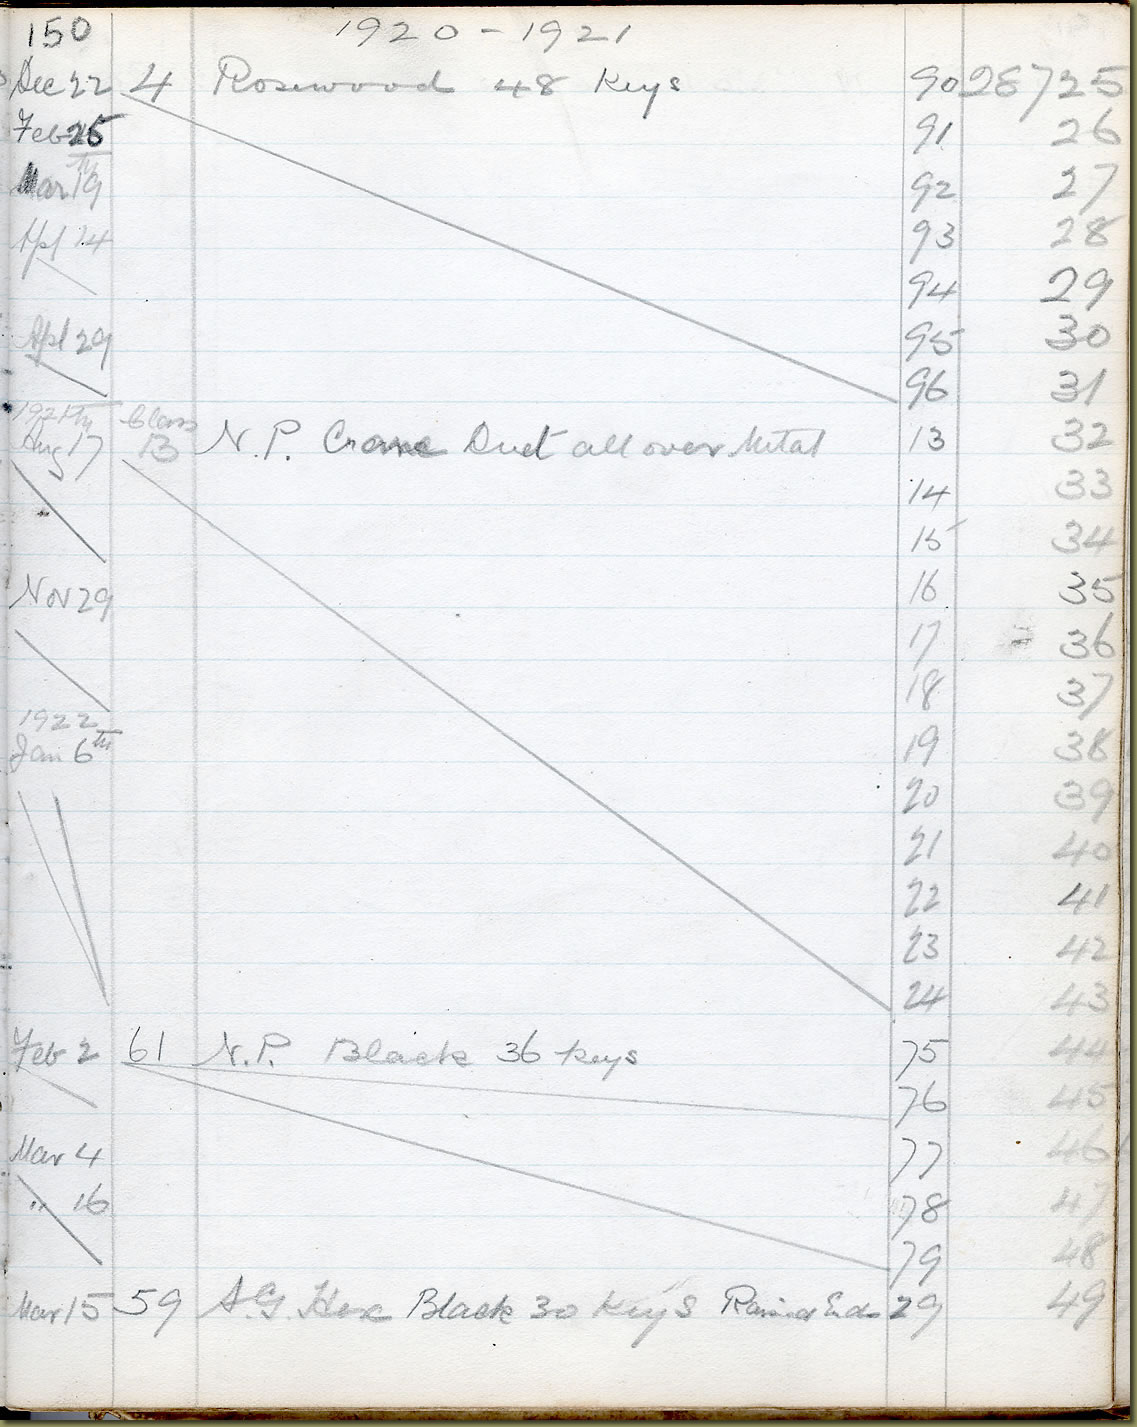 150 1920-1921
Dec 22 4 Rosewood 48 Keys 90 28725
Feb 25 91 26
th
Mar 19 92 27
Apl 14 93 28
94 29
Apl 29 95 30
96 31
1921 th Class
Aug 17 13 N.P. Crane Duet all over Metal 13 32
14 33
15 34
16 35
Nov 29
17 36
18 37
1922
Jan 6th 19 38
20 39
21 40
22 41
23 42
24 43
Feb 2 61 N.P. Black 36 Keys 75 44
76 45
Mar 4 77 46
" 16 78 47
79 48
Mar 15 59 S.G. Hex Black 30 Keys Raised Ends 29 49